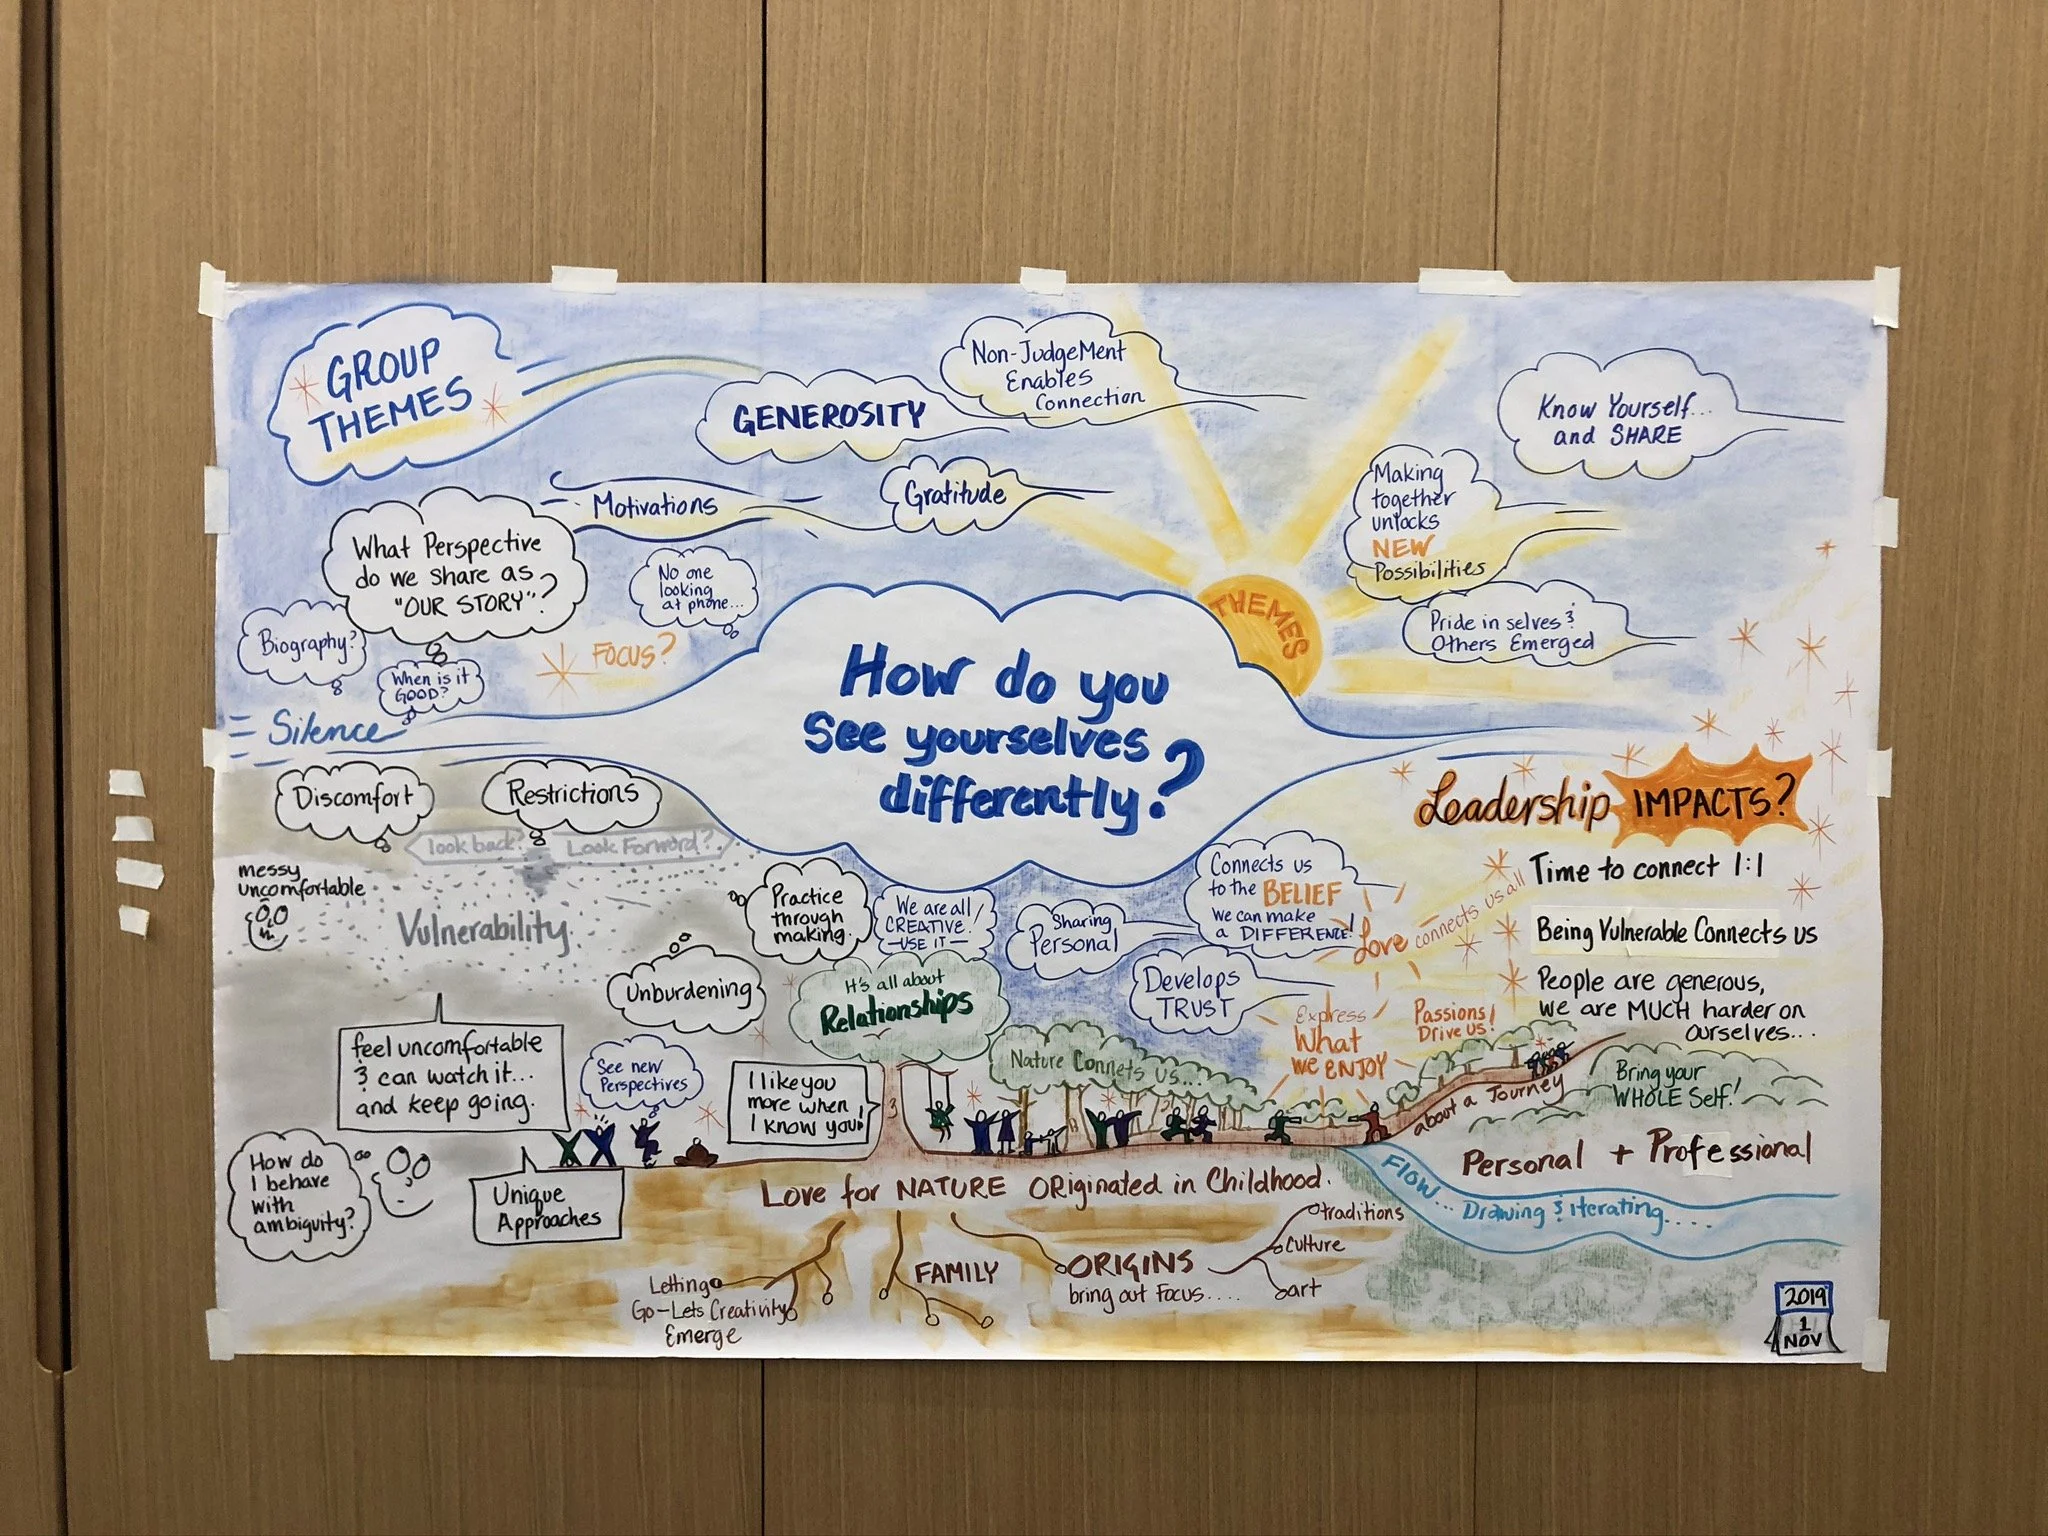 GROUP
THEMES
GENEROSITY
Non-Judgement
Enables
Connection
Know Yourself...
and SHARE
Motivations
Gratitude
Making
together
unlocks
NEW
Possibilities
What Perspective
do we share as
"OUR STORY"?
No one
looking
at phone...
Biography?
When is it
GOOD?
FOCUS?
THEMES
Pride in selves &
Others Emerged
Silence
How do you
see yourselves
differently?
Discomfort
Restrictions
look back?
Look Forward?
messy
uncomfortable
Vulnerability
Practice
through
making.
We are all
CREATIVE!
—USE IT—
Sharing
Personal
Connects us
to the BELIEF
we can make
a DIFFERENCE!
Love connects us all
Develops
TRUST
Express
What
we ENJOY
Passions
Drive us!
Leadership IMPACTS?
Time to connect 1:1
Being Vulnerable Connects us
People are generous,
we are MUCH harder on
ourselves...
Unburdening
It's all about
Relationships
feel uncomfortable
& can watch it...
and keep going.
See new
Perspectives
I like you
more when
I know you!
Nature Connets us...
about a Journey
Bring your
WHOLE Self!
Personal + Professional
How do
I behave
with
ambiguity?
Unique
Approaches
Love for NATURE ORiginated in Childhood.
Flow... Drawing & iterating....
Letting
Go-Lets Creativity
Emerge
FAMILY
ORIGINS
bring out Focus....
traditions
culture
art
2019
1
NOV